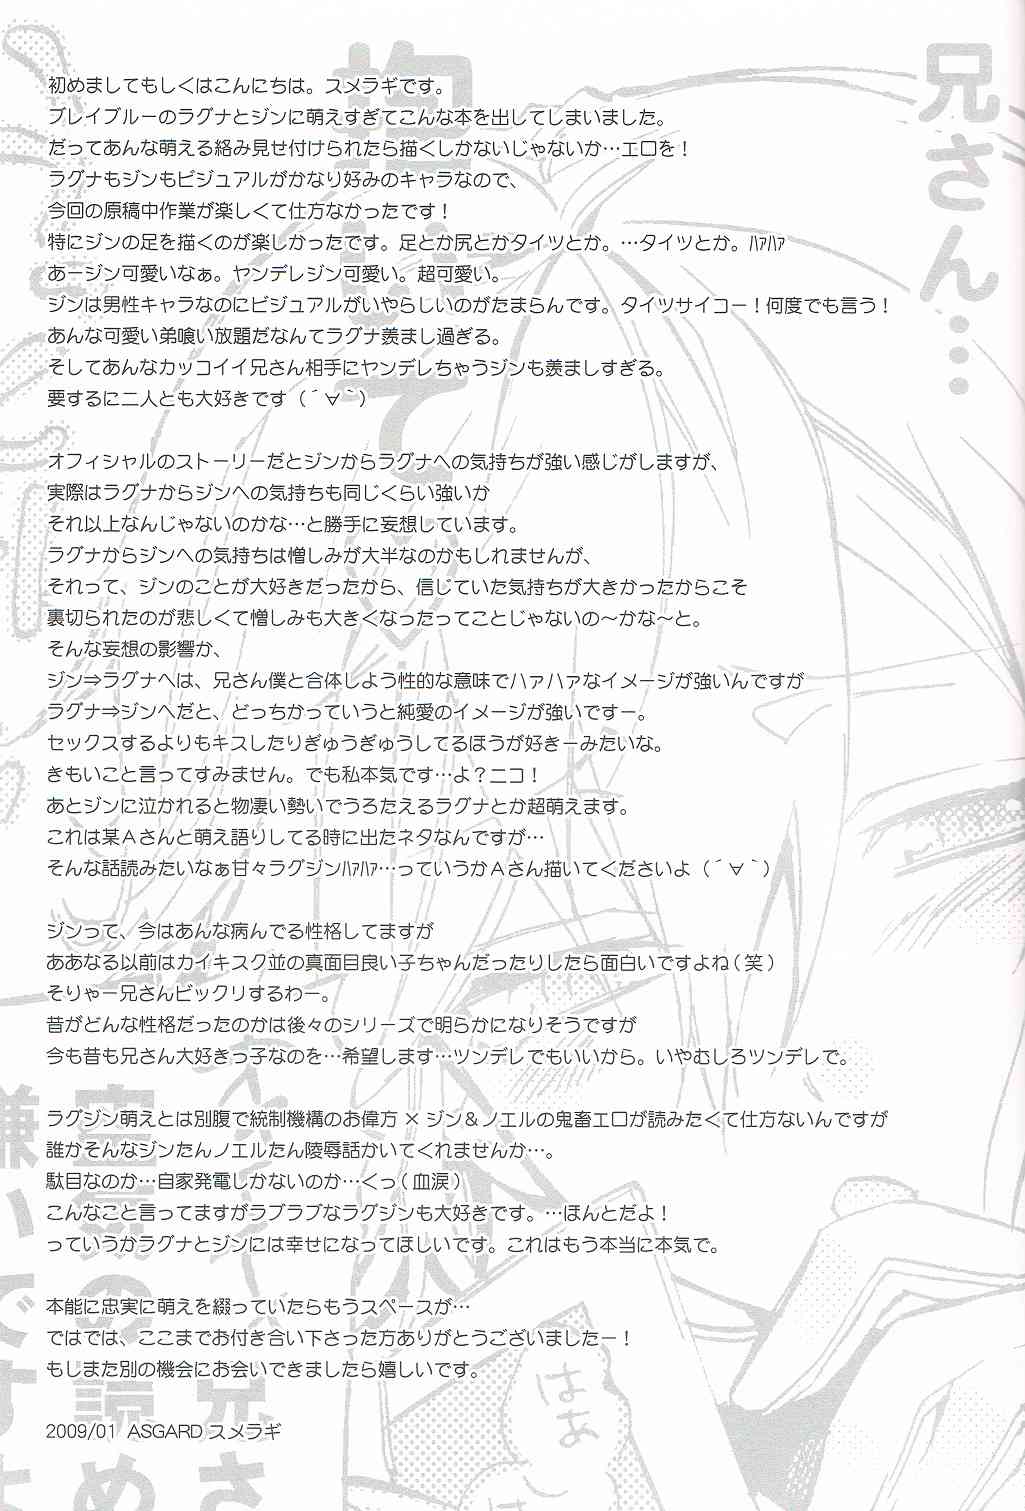 初めましてもしくはこんにちは。スメラギです。
ブレイブルーのラグナとジンに萌えすぎてこんな本を出してしまいました。
だってあんな萌える絡み見せ付けられたら描くしかないじゃないか…エロを！
ラグナもジンもビジュアルがかなり好みのキャラなので、
今回の原稿中作業が楽しくて仕方なかったです！
特にジンの足を描くのが楽しかったです。足とか尻とかタイツとか。…タイツとか。ﾊｧﾊｧ
あージン可愛いなぁ。ヤンデレジン可愛い。超可愛い。
ジンは男性キャラなのにビジュアルがいやらしいのがたまらんです。タイツサイコー！何度でも言う！
あんな可愛い弟喰い放題だなんてラグナ羨まし過ぎる。
そしてあんなカッコイイ兄さん相手にヤンデレちゃうジンも羨ましすぎる。
要するに二人とも大好きです（´∀｀）
オフィシャルのストーリーだとジンからラグナへの気持ちが強い感じがしますが、
実際はラグナからジンへの気持ちも同じくらい強いか
それ以上なんじゃないのかな…と勝手に妄想しています。
ラグナからジンへの気持ちは憎しみが大半なのかもしれませんが、
それって、ジンのことが大好きだったから、信じていた気持ちが大きかったからこそ
裏切られたのが悲しくて憎しみも大きくなったってことじゃないの～かな～と。
そんな妄想の影響か、
ジン⇒ラグナへは、兄さん僕と合体しよう性的な意味でハァハァなイメージが強いんですが
ラグナ⇒ジンへだと、どっちかっていうと純愛のイメージが強いですー。
セックスするよりもキスしたりぎゅうぎゅうしてるほうが好きーみたいな。
きもいこと言ってすみません。でも私本気です…よ？ニコ！
あとジンに泣かれると物凄い勢いでうろたえるラグナとか超萌えます。
これは某Ａさんと萌え語りしてる時に出たネタなんですが…
そんな話読みたいなぁ甘々ラグジンﾊｧﾊｧ…っていうかＡさん描いてくださいよ（´∀｀）
ジンって、今はあんな病んでる性格してますが
ああなる以前はカイキスク並の真面目良い子ちゃんだったりしたら面白いですよね（笑）
そりゃー兄さんビックリするわー。
昔がどんな性格だったのかは後々のシリーズで明らかになりそうですが
今も昔も兄さん大好きっ子なのを…希望します…ツンデレでもいいから。いやむしろツンデレで。
ラグジン萌えとは別腹で統制機構のお偉方×ジン＆ノエルの鬼畜エロが読みたくて仕方ないんですが
誰かそんなジンたんノエルたん陵辱話かいてくれませんか…。
駄目なのか…自家発電しかないのか…くっ（血涙）
こんなこと言ってますがラブラブなラグジンも大好きです。…ほんとだよ！
っていうかラグナとジンには幸せになってほしいです。これはもう本当に本気で。
本能に忠実に萌えを綴っていたらもうスペースが…
ではでは、ここまでお付き合い下さった方ありがとうございましたー！
もしまた別の機会にお会いできましたら嬉しいです。
2009/01 ASGARD スメラギ
兄さん…
抱いて
はあ